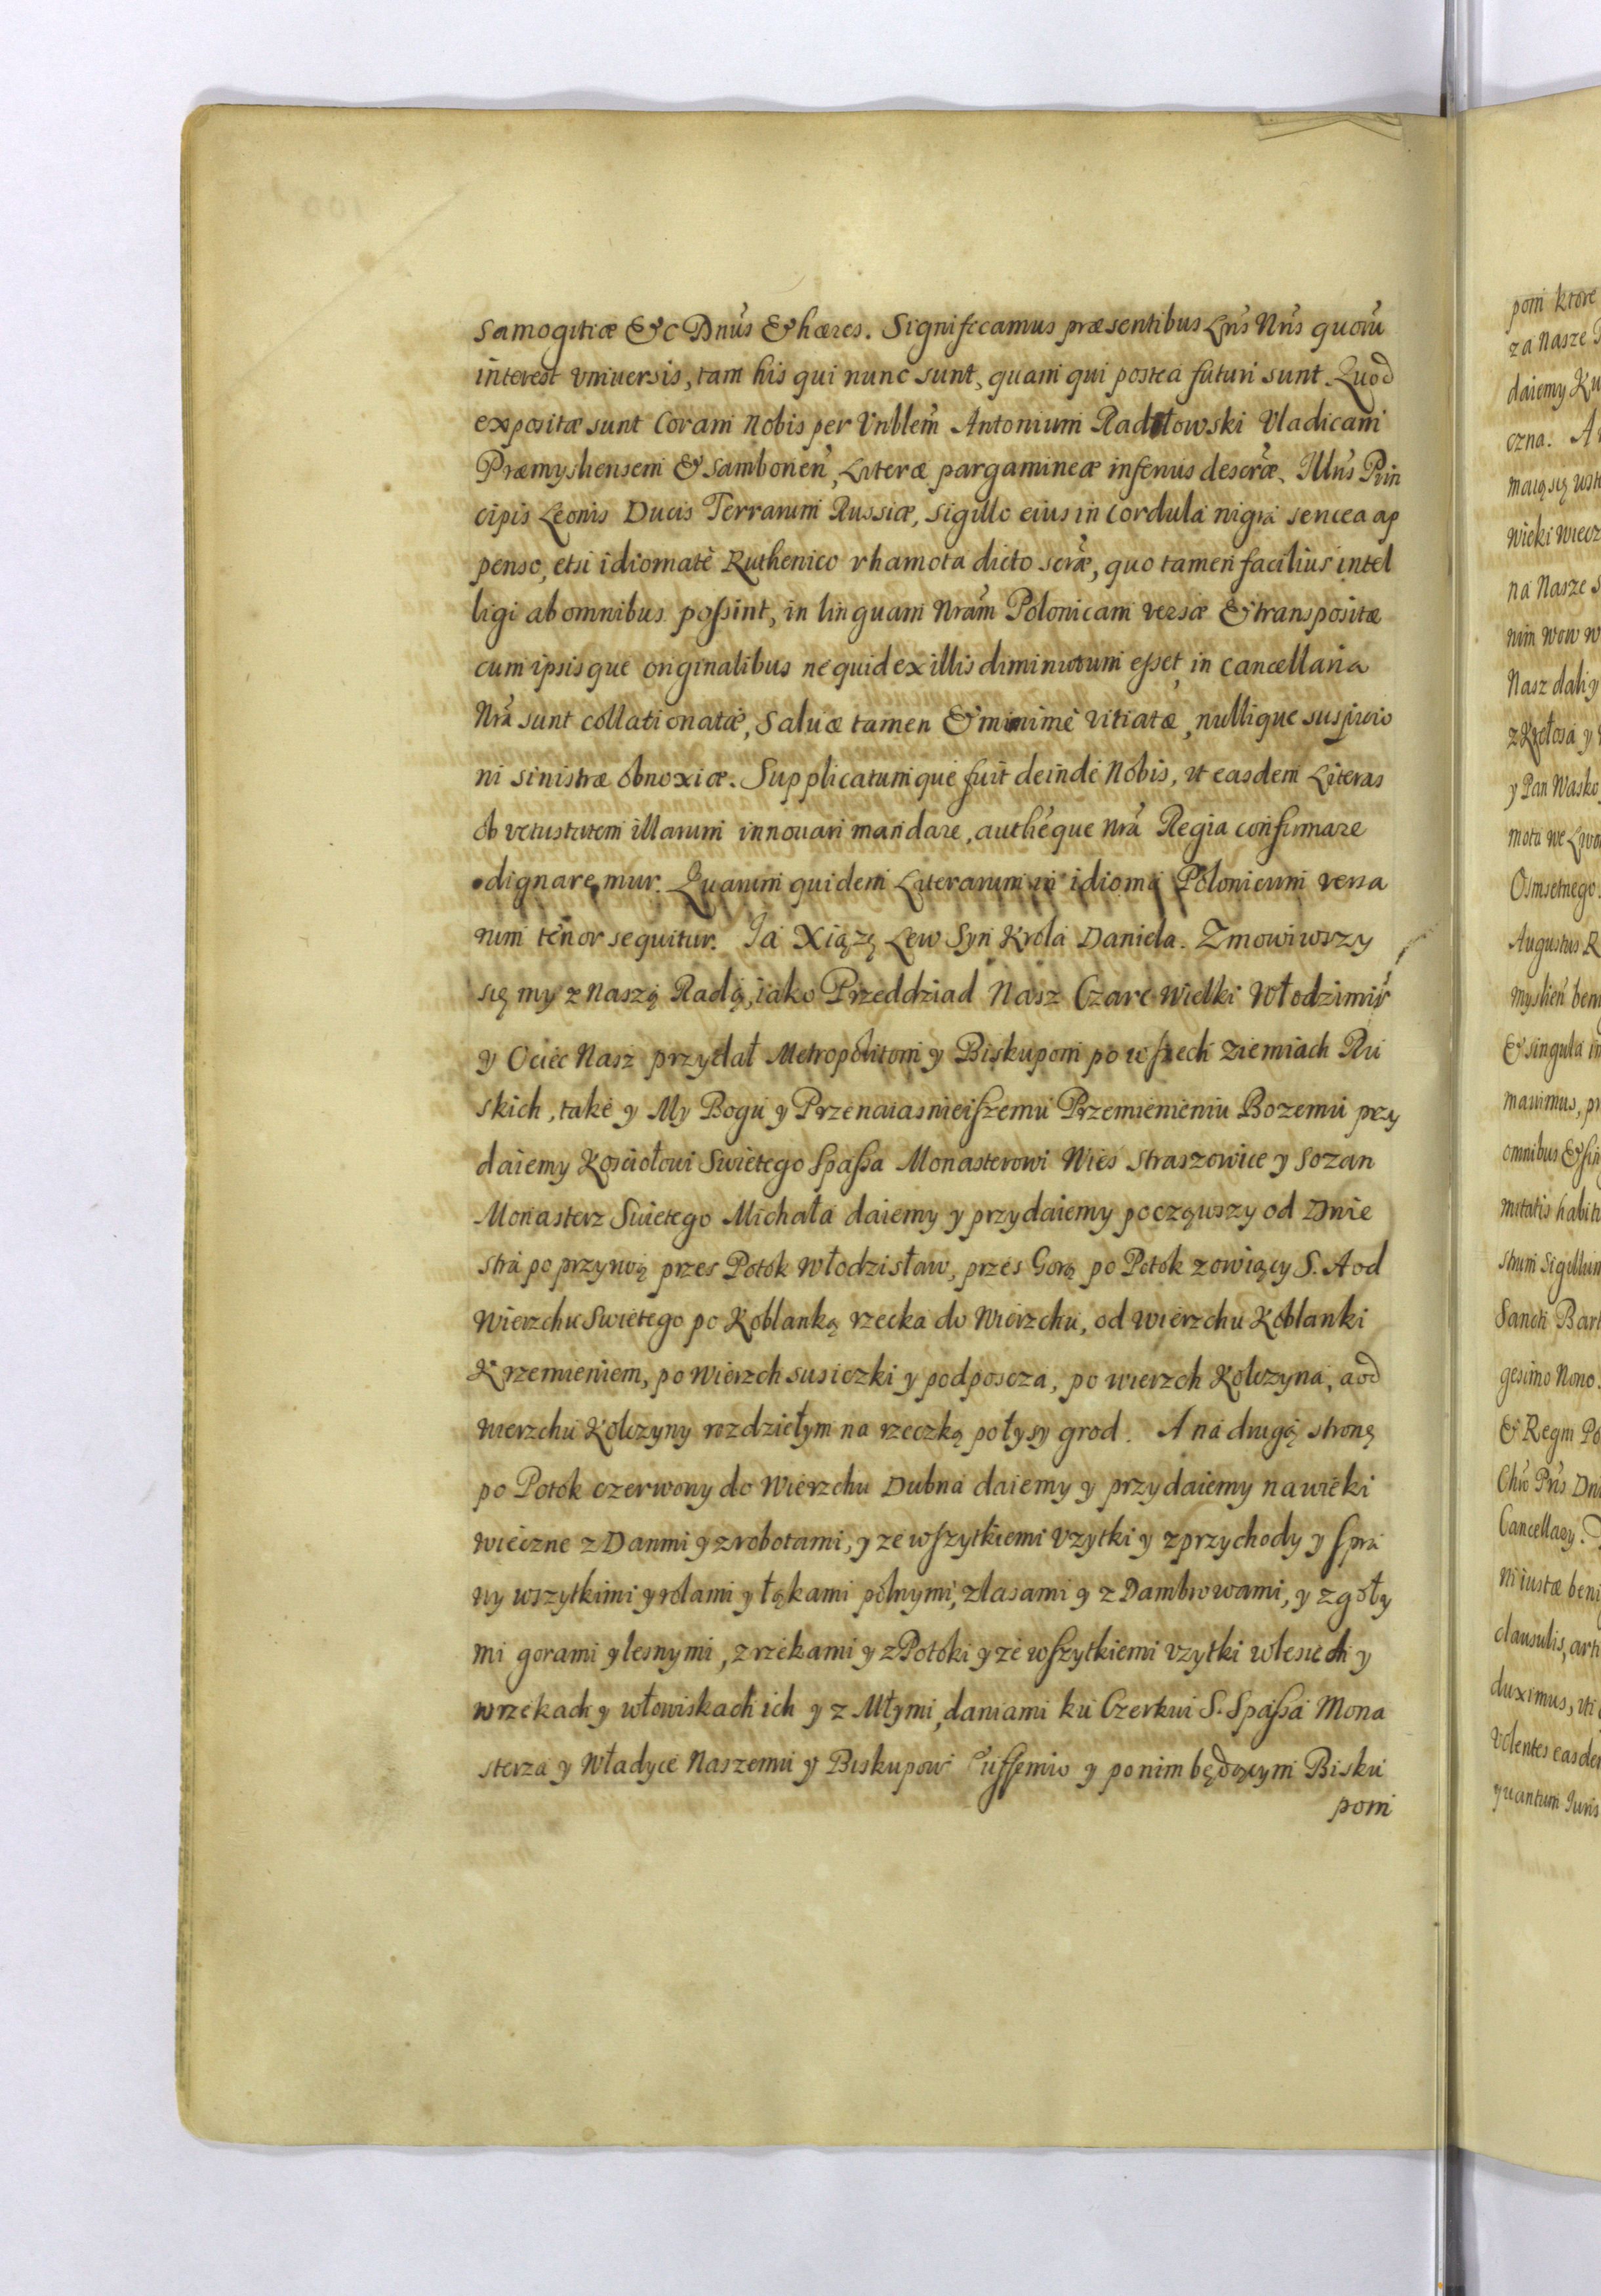 Samogitiæ &c Dnús & hæres. Significamus præsentibus Lrĩs Nrĩs quorũ
interest vniuersis, tam his qui nunc sunt, quam qui postea futuri sunt. Quod
expositæ sunt Coram Nobis per Vnblem̃ Antonium Radiłowski Vladicam
Præmysliensem & Samborień, Literæ pargamineæ inferius descrͣæ, Illús Prin
cipis Leonis Ducis Terrarum Russiæ, sigillo eius in cordula nigra sericea ap
penso, etsi idiomate Ruthenico rhamota dicto scrͣæ, quo tamen facilius intel
ligi ab omnibus possint, in linguam Nrám Polonicam versæ & transpositæ
cum ipsisque originalibus ne quid ex illis diminutum esset, in Cancellaria
Nrá sunt collationatæ, Saluæ tamen & minime vitiatæ, nullique suspicio
ni sinistræ obnoxiæ. Supplicatumque fuit deinde Nobis, vt easdem Literas
ob vetustatem illarum innouari mandare, authéque Nrá Regia confirmare
dignaremur. Quarum quidem Literarum in idioma Polonicum versa
rum tenor sequitur. Ja Xiążę Lew Syn Krola Daniela. Zmowiwszy
się my z Naszą Radą, iako Przeddziad Nasz Czarc Wielki Włodzimír
y Ociec Nasz przydał Metropolitom y Biskupom po wszech ziemiach Ru
skich, take y My Bogu y Przenaiasnieiszemu Przemienieniu Bozemu przy
daiemy Kosciołowi Swietego Spassa Monasterowi Wies Straszowice y Sozan
Monasterz Swietego Michała daiemy y przydaiemy począwszy od Dnie
stra po przywą przes Potok Włodzisław, przes Gorą po Potok zowiący S. A od
Wierzchu Swietego po Koblanką rzecka do Wierzchu, od wierzchu Koblanki
Krzemieniem, po Wierzch susiczki y podposcza, po wierzch Kolczyna, a od
wierzchu Kolczyny rozdziełym na rzeczką po łysy grod. A na drugą stronę
po Potok czerwony do Wierzchu Dubna daiemy y przydaiemy na wieki
wieczne z Danmi y z robotami, y ze wszytkiemi vzytki y z przychody y spra
wy wszytkimi y rolami y łąkami polnymi, z lasami y z Dambrowami, y z goły
mi gorami y lesnymi, z rzekami y z Potoki y ze wszytkiemi vzytki w lesiech y
w rzekach y w łowiskach ich y z Młymi, daniami ku Czerkwi S. Spassa Mona
sterza y Władyce Naszemu y Biskupow y po nim będącym Bisku
pom